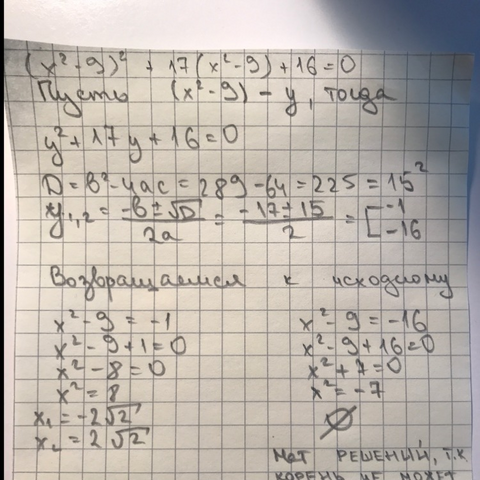 (x²-9)² + 17(x²-9)+16=0
Пусть (x²-9) - y, тогда
y²+17y+16=0
D=b²-4ac=289-64=225=15²
y₁,₂ = (-b±√D)/2a = (-17±15)/2 = [-1 -16
Возвращаемся к исходному
x²-9=-1
x²-9+1=0
x²-8=0
x²=8
x₁=-2√2
x₂=2√2
x²-9=-16
x²-9+16=0
x²+7=0
x²=-7
∅
Нет РЕШЕНИЙ, Т.К
КОРЕНЬ НЕ МОЖЕТ